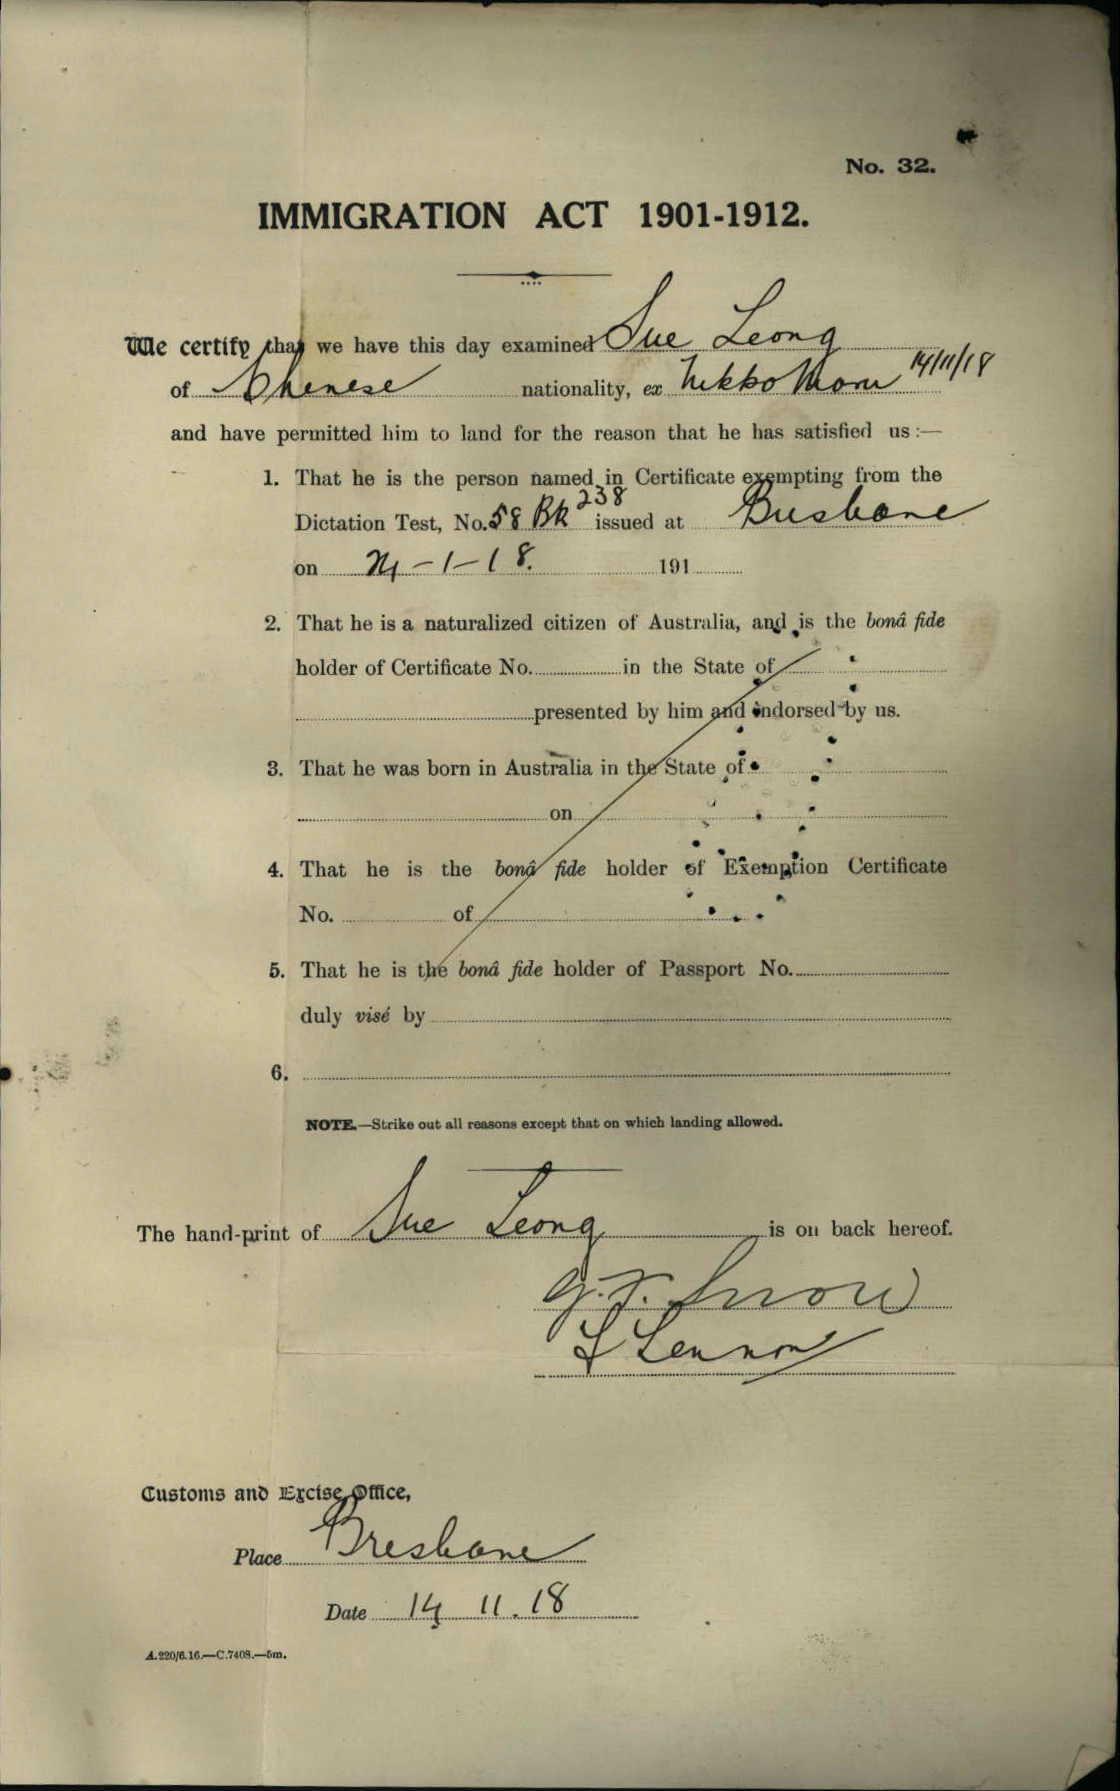 No. 32.
IMMIGRATION ACT 1901-1912.
We certify that we have this day examined Sue Leong
of Chinese nationality, ex Nikko Maru 14/11/18
and have permitted him to land for the reason that he has satisfied us:—
1. That he is the person named in Certificate exempting from the
Dictation Test, No. 58 Bk 238 issued at Brisbane
on -1-18. 191
2. That he is a naturalized citizen of Australia, and is the bonâ fide
holder of Certificate No. in the State of
presented by him and endorsed by us.
3. That he was born in Australia in the State of
on
4. That he is the bonâ fide holder of Exemption Certificate
No. of
5. That he is the bonâ fide holder of Passport No.
duly visé by
6.
NOTE.—Strike out all reasons except that on which landing allowed.
The hand-print of Sue Leong is on back hereof.
Snow
Lennon
Customs and Excise Office,
Place Brisbane
Date 14 11. 18
A.220/6.16.—C.7408.—5m.